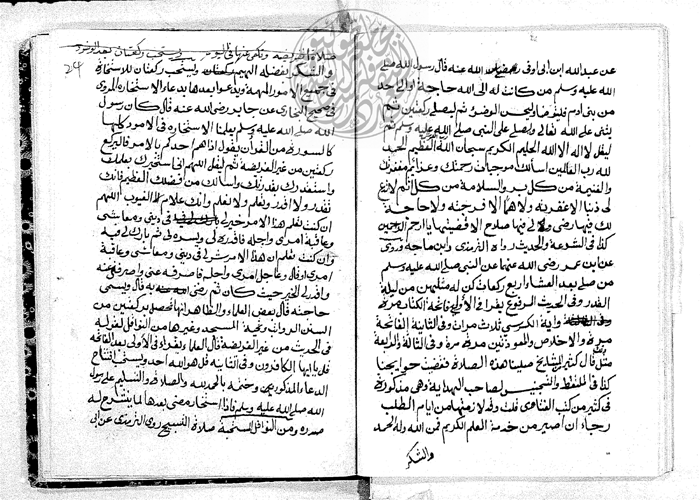 عن عبد الله ابن ابى اوفى رضى الله عنه قال رسول الله صلى
الله عليه وسلم من كانت له الى الله حاجة او الى احد
من بنى ادم فليتوضا وليحسن الوضوء ثم ليصلى ركعتين ثم
يثنى على الله تعالى وليصلى على النبى صلى الله عليه وسلم ثم
ليقل لا اله الا الله الحليم الكريم سبحان الله العظيم الحمد
لله رب العالمين اسالك موجبات رحمتك وعزائم مغفرتك
والغنيمة من كل بر والسلامة من كل اثم لا تدع
لى ذنبا الا غفرته ولا هما الا فرجته ولا حاجة
لك فيها رضى ولى فيها صلاح الا قضيتها يا ارحم الراحمين
كذا فى الشرعة والحديث رواه الترمذى وابن ماجة وروى
عن ابن عمر رضى الله عنهما عن النبى صلى الله عليه وسلم
من صلى بعد العشاء اربع ركعات كن له مثلهن من ليلة
القدر وفى الحديث المرفوع يقرا فى الاولى فاتحة الكتاب مرة
واية الكرسى ثلاث مرات وفى الثانية الفاتحة
مرة والاخلاص والمعوذتين مرة مرة وفى الثالثة والرابعة
مثل قال كثير المشايخ صلينا هذه الصلاة فقضيت حوايجنا
كذا فى الملتقط والتجنيس لصاحب الهداية وهى مذكورة
فى كثير من كتب الفتاوى قلت وقد لازمتهل من ايام الطلب
رجاء ان اصير من خدمة العلم الكريم فمن الله وله الحمد
والشكر
24
صلاة ويستحب ركعتان بعد الوضوء
والشكر لفضله ويستحب ركعتان للاستخارة
فى جميع الامور المهمة ويدعو بعدها بدعاء الاستخارة المروى
فى صحيح البخارى عن جابر رضى الله عنه قال كان رسول
الله صلى الله عليه وسلم يعلمنا الاستخارة فى الامور كلها
كالسورة من القران يقول اذا هم احدكم بالامر فليركع
ركعتين من غير الفريضة ثم ليقل اللهم انى استخيرك بعلمك
واستقدرك بقدرتك واسالك من فضلك العظيم فانك
تقدر ولا اقدر وتعلم ولا اعلم وانت علام الغيوب اللهم
ان كنت تعلم هذا الامر خير لى فى دينى ومعاشى
وعاقبة امرى واجله فاقدره لى ويسره لى ثم بارك لى فيه
وان كنت تعلم ان هذا الامر شر لى فى دينى ومعاشى وعاقبة
امرى او قال وعاجل امرى واجله فاصرفه عنى واصرفنى عنه
واقدر لى الخير حيث كان ثم رضنى به قال ويسمى
حاجته قال بعض العلماء والظاهر انها تحصل بركعتين من
السنن الرواتب وتحية المسجد وغيرها من النوافل لقوله
فى الحديث من غير الفريضة قال العلماء ويقرا فى الاولى بعد الفاتحة
قل يا ايها الكافرون وفى الثانية قل هو الله احد ويسن افتتاح
الدعاء المذكور وختمه بالحمد لله والصلاة والتسليم على رسول
الله صلى الله عليه وسلم فاذا استخار مضى بعدها لما ينشرح له
صدره ومن النوافل المستحبة صلاة التسبيح روى الترمذى عن ابى